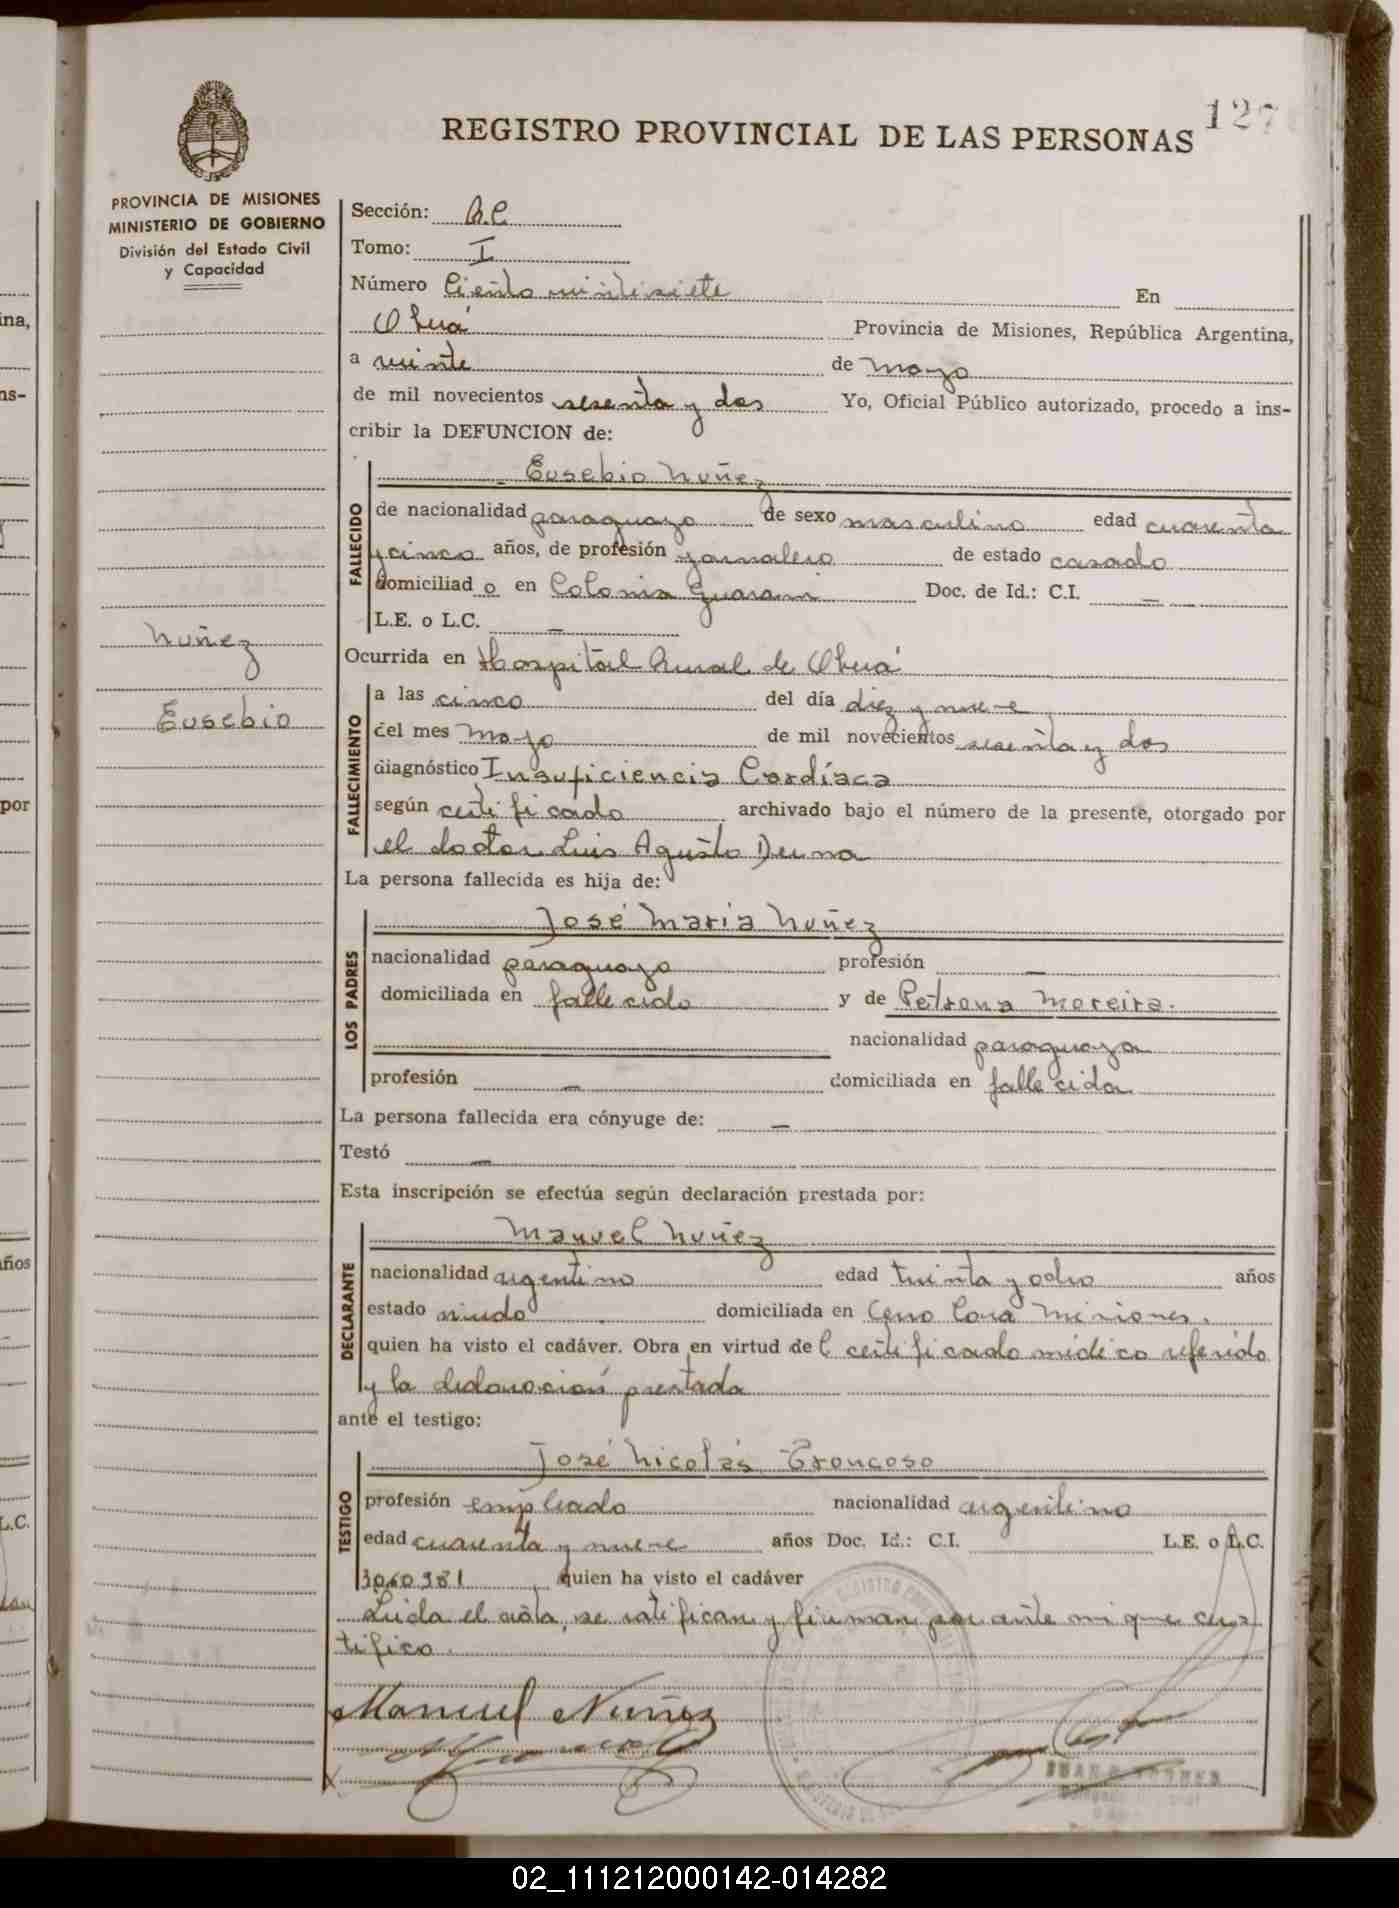 127
REGISTRO PROVINCIAL DE LAS PERSONAS
PROVINCIA DE MISIONES
MINISTERIO DE GOBIERNO
División del Estado Civil
y Capacidad
Nuñez
Eusebio
Sección:
Tomo: I
Número Ciento veintisiete En
Oberá Provincia de Misiones, República Argentina,
a veinte de mayo
de mil novecientos sesenta y dos Yo, Oficial Público autorizado, procedo a ins-
cribir la DEFUNCION de:
FALLECIDO
Eusebio Nuñez
de nacionalidad paraguayo de sexo masculino edad cuarenta
y cinco años, de profesión jornalero de estado casado
domiciliad o en Colonia Guarani Doc. de Id.: C.I. —
L.E. o L.C. —
Ocurrida en Hospital Rural de Oberá
FALLECIMIENTO
a las cinco del día diez y nueve
del mes mayo de mil novecientos sesenta y dos
diagnóstico Insuficiencia Cardíaca
según certificado archivado bajo el número de la presente, otorgado por
el doctor Luis Agusto Derna
La persona fallecida es hija de:
LOS PADRES
José Maria Nuñez
nacionalidad paraguayo profesión —
domiciliada en fallecido y de Petrona Moreira.
nacionalidad paraguaya
profesión — domiciliada en fallecida
La persona fallecida era cónyuge de: —
Testó —
Esta inscripción se efectúa según declaración prestada por:
DECLARANTE
Manuel Nuñez
nacionalidad argentino edad treinta y ocho años
estado viudo domiciliada en Cerro Cora Misiones.
quien ha visto el cadáver. Obra en virtud de l certificado médico referido
y la declaración prestada
ante el testigo:
TESTIGO
José Nicolás Troncoso
profesión empleado nacionalidad argentino
edad cuarenta y nueve años Doc. Id.: C.I. L.E. o L.C.
3060981 quien ha visto el cadáver
Leída el acta, se ratifican y firman por ante mi que cer
tifico.
Manuel Nuñez
02_111212000142-014282